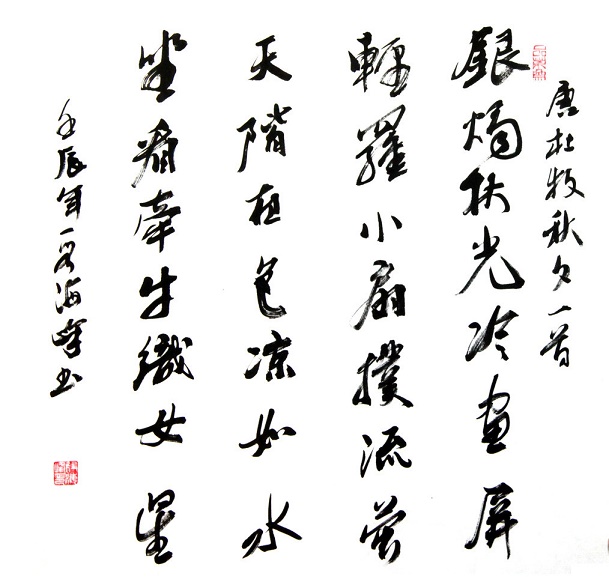 唐杜牧秋夕一首
銀燭秋光冷畫屏
輕羅小扇撲流螢
天階夜色凉如水
坐看牽牛織女星
壬辰年海峰书